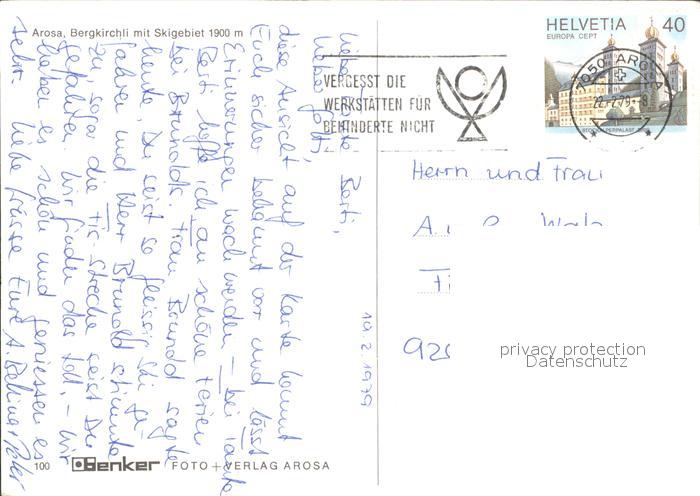 Arosa, Bergkirchli mit Skigebiet 1900 m
HELVETIA 40
EUROPA CEPT
STOCKALPERPALAST
7050 AROSA
22.2.79 - 8
VERGESST DIE
WERKSTÄTTEN FÜR
BEHINDERTE NICHT
Liebe Tante Rösti,
lieber Götti,
diese Ansicht auf der Karte kommt
Euch sicher bekannt vor und lässt
Erinnerungen wach werden – bei Tante
Rösti hoffe ich an schöne Ferien
bei Brunolds. Frau Brunold sagte
heute, Du seist so fleissig Ski ge-
fahren und Herr Brunold stimmte
zu, sogar die FIS-Strecke seist Du
gefahren. Wir finden das toll. – Wir
haben es schön und geniessen es
sehr. Liebe Grüsse Eure A.
19.2.1979
Herrn und Frau
A.
privacy protection
Datenschutz
100 Benker FOTO + VERLAG AROSA